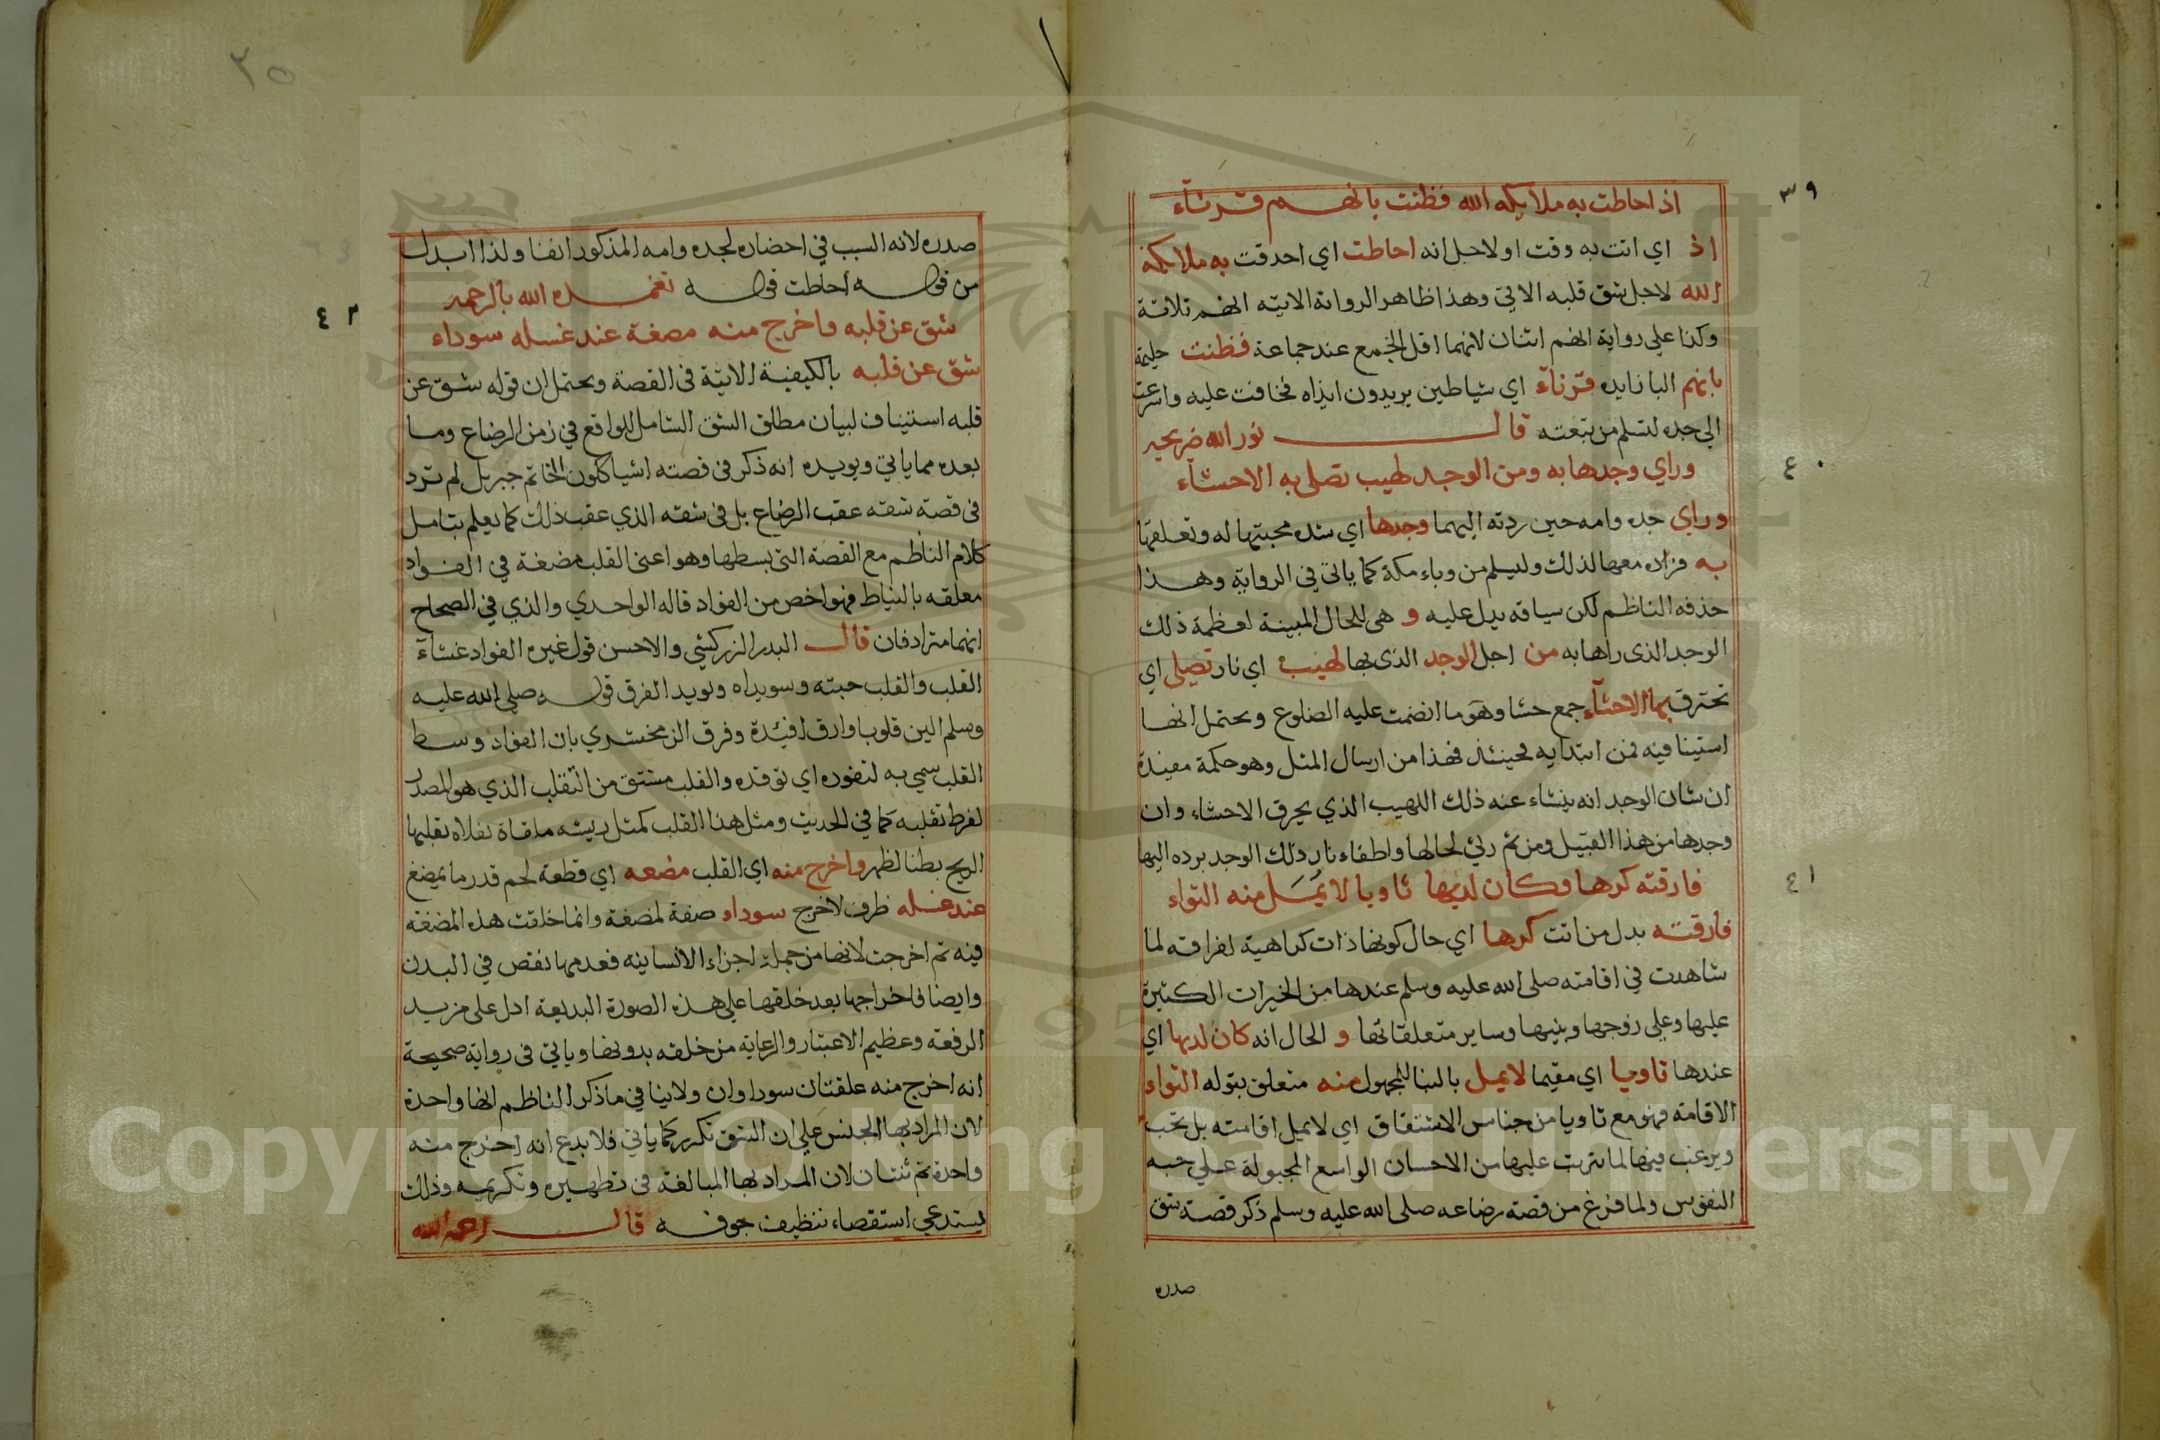 ٣٩
اذ احاطت به ملايكه الله فظنت بانهم قرناء
اذ اي اتت به وقت او لاجل انه احاطت اي احدقت به ملايكة
الله لاجل شق قلبه الاتي وهذا ظاهر الرواية الاتيه انهم ثلاثة
وكذا علي رواية انهم اثنان لانهما اقل الجمع عند جماعة فظنت حليمة
بانهم البا زايده قرناء اي شياطين يريدون ايذاه فخافت عليه واسرعت
الي جده لتسلم من تبعته قال نور الله ضريحه
٤٠
وراي وجدها به ومن الوجد لهيب تصلى به الاحشاء
وراي جده وامه حين ردته اليهما وجدها اي شده محبتها له وتعلقها
به فزاده معها لذلك وليسلم من وباء مكة كما ياتي في الرواية وهذا
حذفه الناظم لكن سياقه يدل عليه و هى للحال المبينة لعظمة ذلك
الوجد الذى راها به من اجل الوجد الذى بها لهيب اي نار تصلى اي
تحترق بها الاحشاء جمع حشا وهو ما انضمت عليه الضلوع ويحتمل انها
استينافيه فمن ابتدايه فحينئذ فهذا من ارسال المثل وهو حكمة مفيدة
ان شان الوجد انه ينشاء عنه ذلك اللهيب الذي يحرق الاحشاء وان
وجدها من هذا القبيل ومن ثم رئي لحالها واطفاء نار ذلك الوجد برده اليها
٤١
فارقته كرها وكان لديها ثاويا لا يمل منه الثواء
فارقته بدل من اتت كرها اي حال كونها ذات كراهية لفراقه لما
شاهدت في اقامته صلى الله عليه وسلم عندها من الخيرات الكثيرة
عليها وعلى زوجها وبنيها وساير متعلقاتها و الحال انه كان لديها اي
عندها ثاويا اي مقيما لا يمل بالبنا للمجهول منه متعلق بقوله الثواء
الاقامة فهو مع ثاويا من جناس الاشتقاق اي لا يمل اقامته بل تحب
ويرغب فيها لما يترتب عليها من الاحسان الواسع المجبولة علي حبه
النفوس ولما فرغ من قصة رضاعه صلى الله عليه وسلم ذكر قصة شق
صدره
٣٥
صدره لانه السبب في احضاره لجده وامه المذكور انفا ولذا ابدل
من قوله احاطت قوله تغمده الله بالرحمه
٤٢
شق عن قلبه واخرج منه مضغة عند غسله سوداء
شق عن قلبه بالكيفية الاتية فى القصة ويحتمل ان قوله شق عن
قلبه استيناف لبيان مطلق الشق الشامل للواقع في زمن الرضاع وما
بعده مما ياتي ويويده انه ذكر فى قصته اشيا ككون الخاتم جبريل لم ترد
فى قصة شقه عقب الرضاع بل فى شقه الذي عقب ذلك كما يعلم بتامل
كلام الناظم مع القصة التى بسطها وهو اعنى القلب مضغة في الفواد
معلقه بالنياط فهو اخص من الفواد قاله الواحدي والذي في الصحاح
انهما مترادفان قال البدر الزركشي والاحسن قول غيره الفواد غشاء
القلب والقلب حبته وسويداه ويويد الفرق قوله صلى الله عليه
وسلم الين قلوبا وارق افئدة وفرق الزمخشري بان الفواد وسط
القلب سمي به لتفوده اي توقده والقلب مشتق من التقلب الذي هو المصدر
لفرط تقلبه كما في الحديث ومثل هذا القلب كمثل ريشه ملقاة بفلاه تقلبها
الريح بطنا لظهر واخرج منه اي القلب مضغه اي قطعة لحم قدر ما يمضغ
عند غسله ظرف لاخرج سوداء صفة لمضغة وانما خلقت هذه المضغه
فيه ثم اخرجت لانها من جملة اجزاء الانسانيه فعدمها نقص في البدن
وايضا فاخراجها بعد خلقها علي هذه الصورة البديعة ادل على مزيد
الرفعه وعظيم الاعتبار والرعاية من خلقه بدونها وياتي فى رواية صحيحة
انه اخرج منه علقتان سوداوان ولاينافي ما ذكر الناظم انها واحدة
لان المراد بها الجنس علي ان الشق تكرر كما ياتي فلا بدع انه اخرج منه
واحدة ثم ثنتان لان المراد بها المبالغة فى تطهيره وتكريمه وذلك
يستدعي استقصاء تنظيف جوفه قال رحمه الله
Copyright © King Saud University